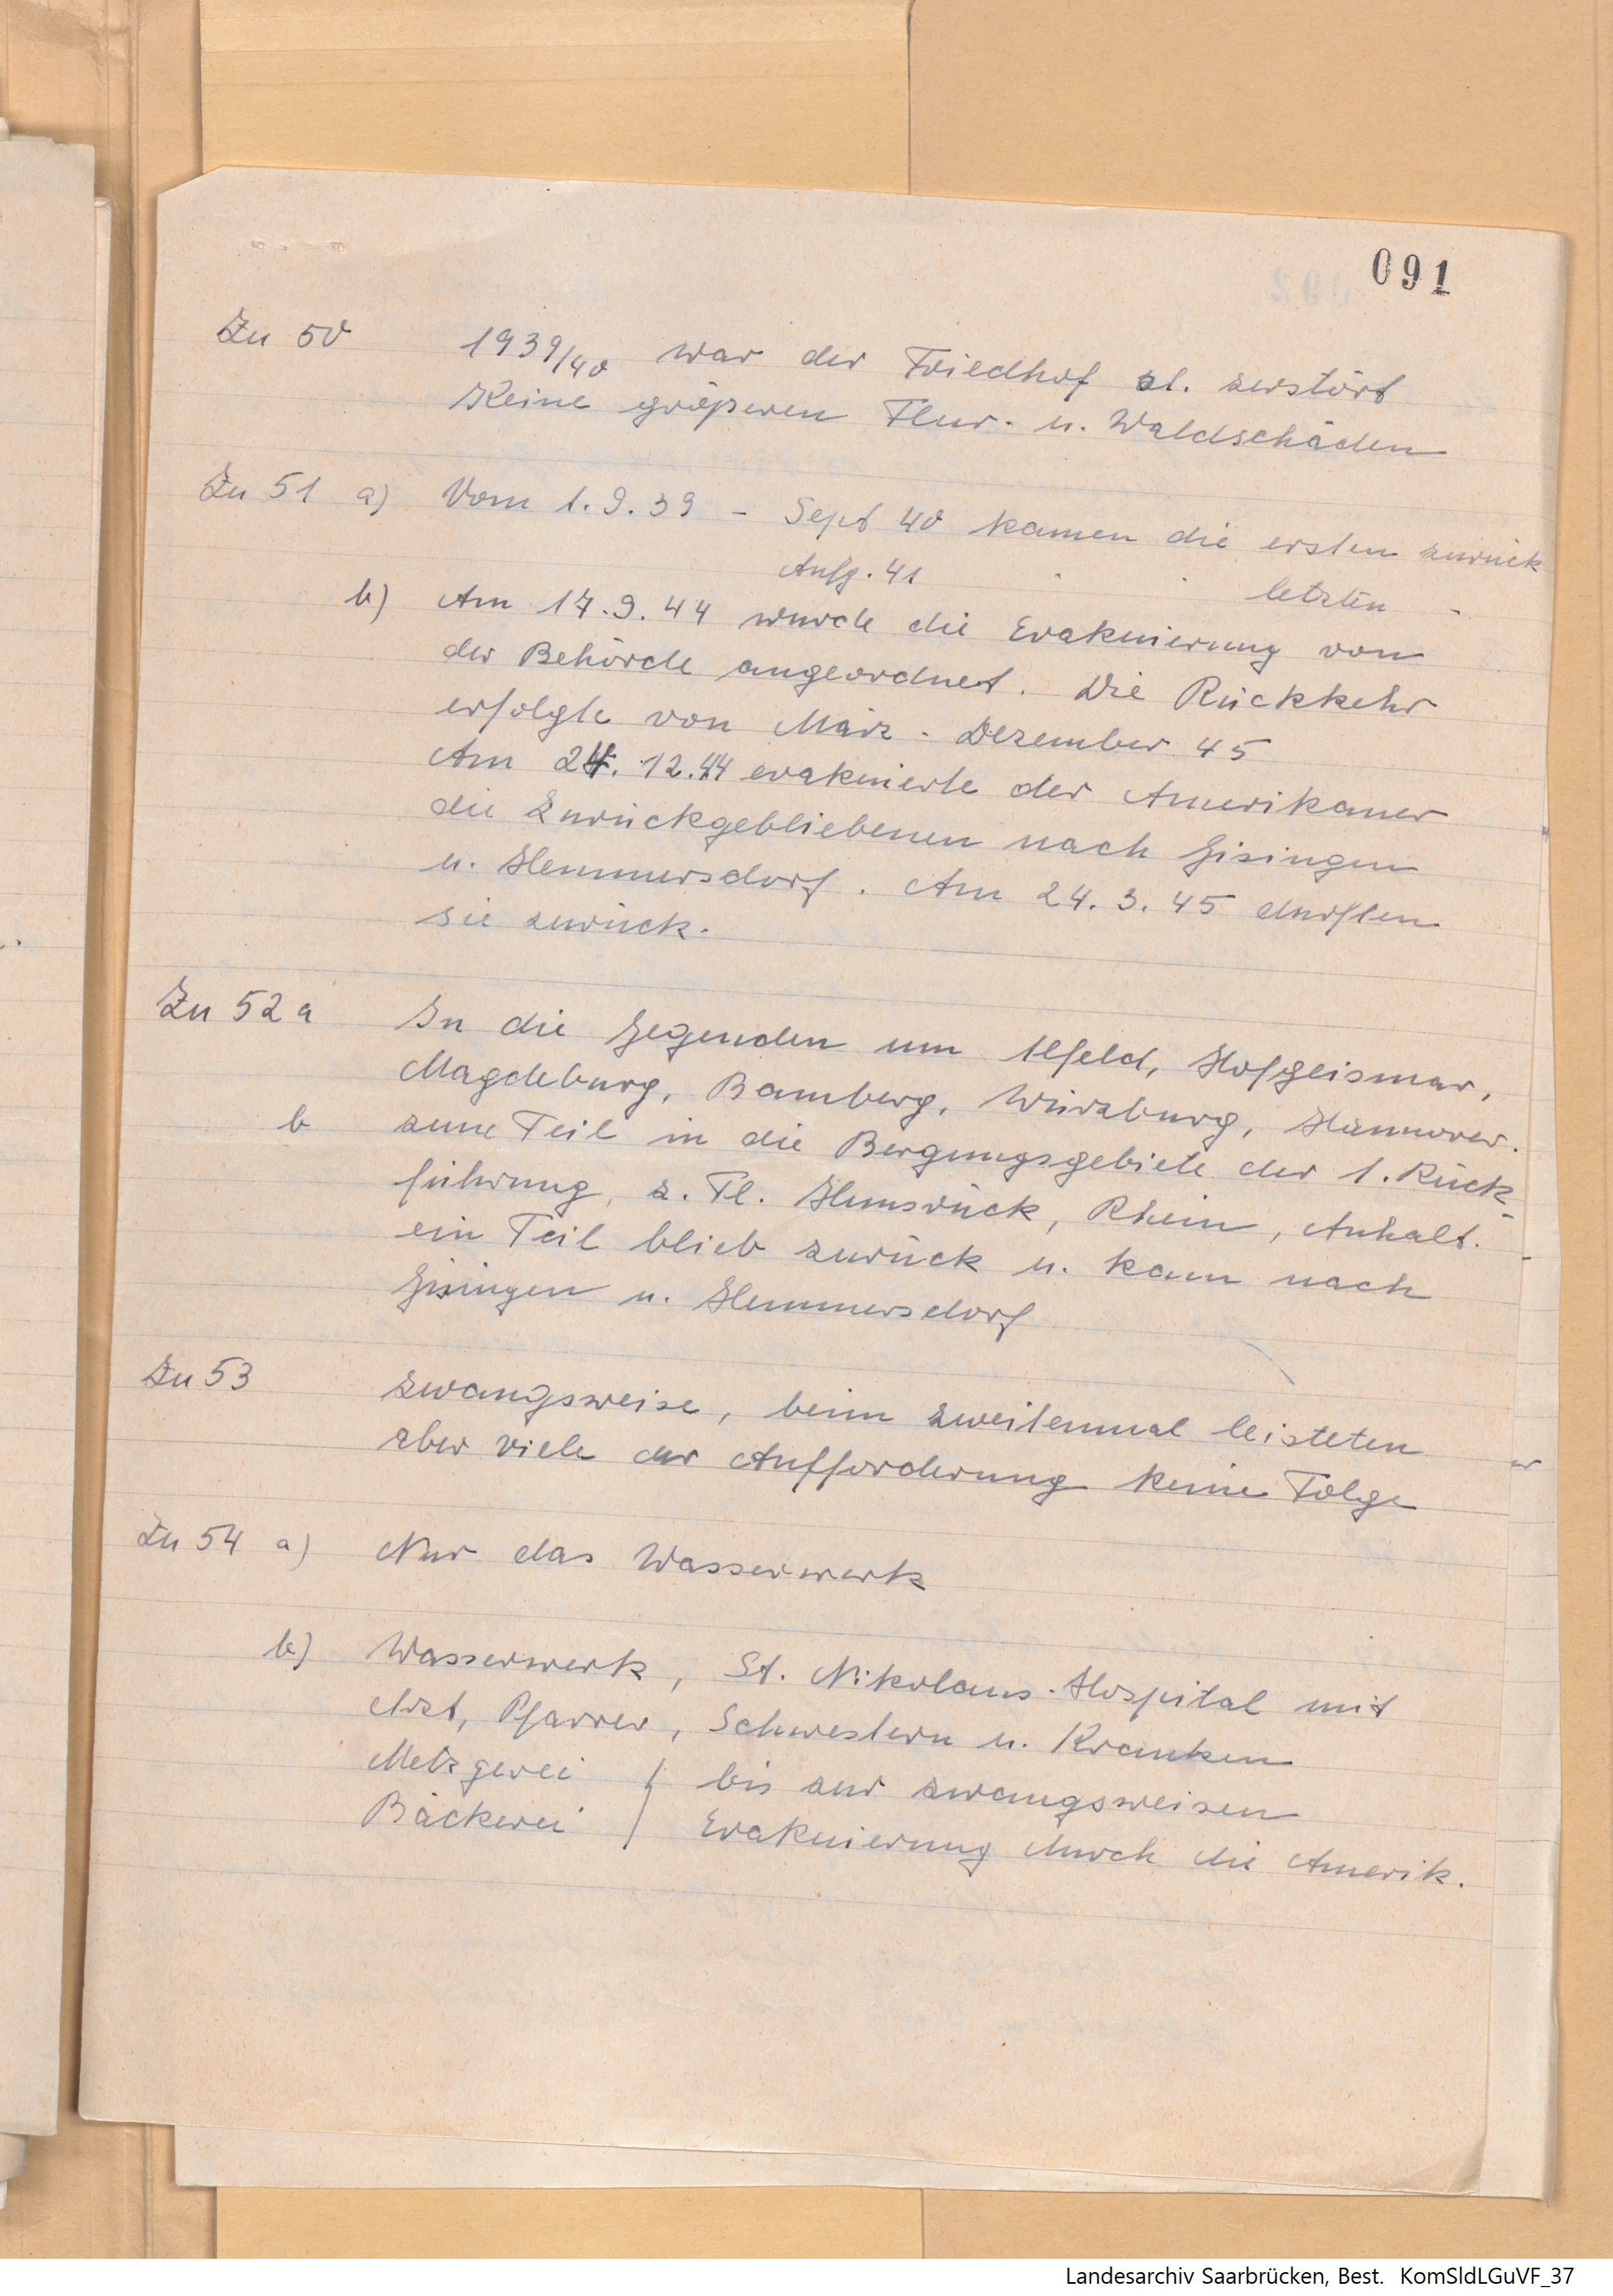 091
Zu 50 1939/40 war der Friedhof zl. zerstört
Keine größeren Flur- u. Waldschäden
Zu 51 a) Vom 1.9.39 - Sept 40 kamen die ersten zurück
Anfg. 41 " " letzten "
b) Am 17.9.44 wurde die Evakuierung von
der Behörde angeordnet. Die Rückkehr
erfolgte von März - Dezember 45
Am 24. 12.44 evakuierte der Amerikaner
die Zurückgebliebenen nach Gisingen
u. Hemmersdorf. Am 24.3.45 durften
sie zurück.
Zu 52 a In die Gegenden um Ilfeld, Hofgeismar,
Magdeburg, Bamberg, Würzburg, Hannover.
b zum Teil in die Bergungsgebiete der 1. Rück-
führung, z. Tl. Hunsrück, Rhein, Anhalt.
ein Teil blieb zurück u. kam nach
Gisingen u. Hemmersdorf
Zu 53 zwangsweise, beim zweitenmal leisteten
aber viele der Aufforderung keine Folge
Zu 54 a) Nur das Wasserwerk
b) Wasserwerk, St. Nikolaus-Hospital mit
Arzt, Pfarrer, Schwestern u. Kranken
Metzgerei } bis zur zwangsweisen
Bäckerei } Evakuierung durch die Amerik.
Landesarchiv Saarbrücken, Best. KomSldLGuVF_37